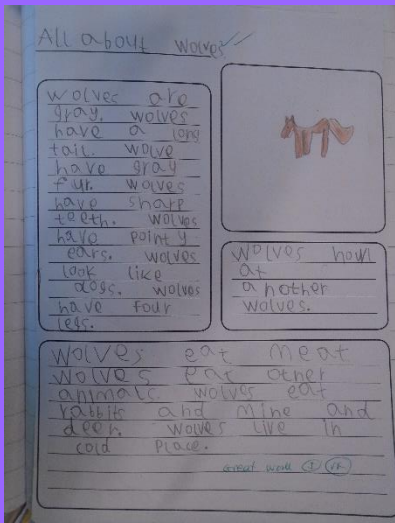 All about wolves
wolves are
gray. wolves
have a long
tail. wolve
have gray
fur. wolves
have share
teeth. wolves
have pointy
ears. wolves
look like
dogs. wolves
have four
legs.
wolves howl
at
another
wolves.
wolves eat meat
wolves eat other
animals wolves eat
rabbits and mine and
deer. wolves live in
cold place.
great work